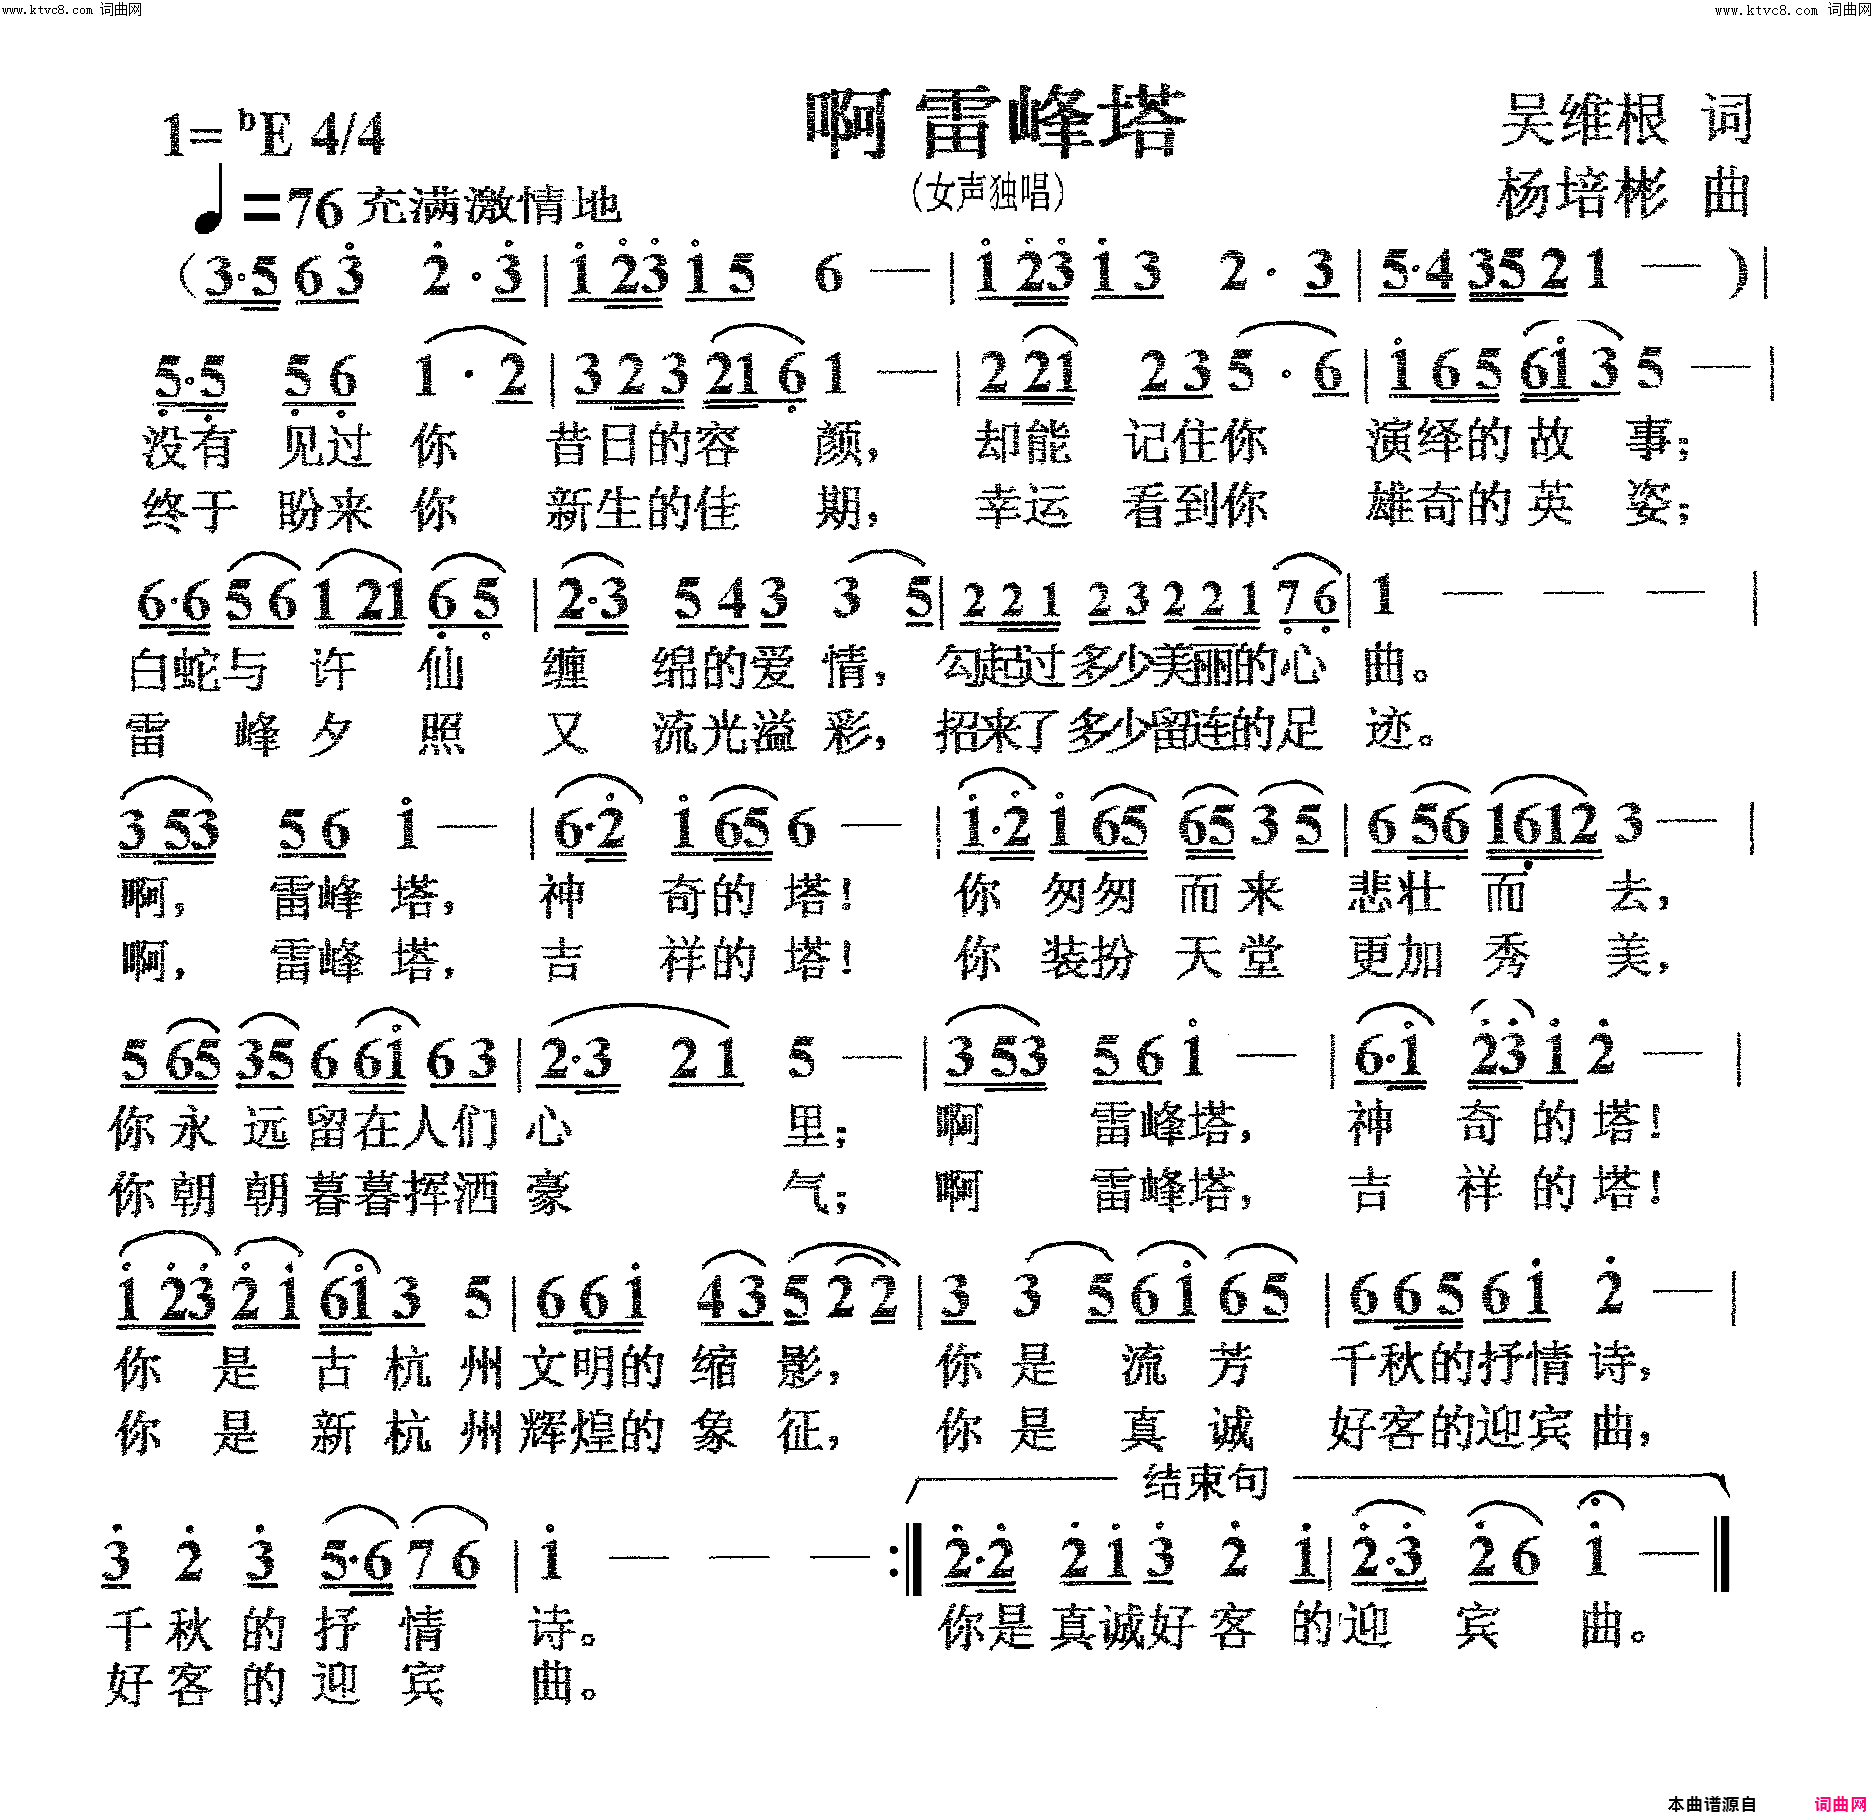 www.ktvc8.com 词曲网 www.ktvc8.com 词曲网
啊 雷峰塔
1= bE 4/4
吴维根 词
(女声独唱)
杨培彬 曲
♩=76 充满激情地
(3·5 6 3 2 · 3 | 1 23 1 5 6 — | 1 23 1 3 2 · 3 | 5·4 35 2 1 — )|
5·5 5 6 1 · 2 | 3 2 3 21 6 1 — | 2 21 2 3 5 · 6 | 1 6 5 61 3 5 — |
没有 见过 你 昔日的容 颜, 却能 记住你 演绎的 故 事;
终于 盼来 你 新生的佳 期, 幸运 看到你 雄奇的 英 姿;
6·6 5 6 1 21 6 5 | 2·3 5 4 3 3 5 | 2 2 1 2 3 2 2 1 7 6 | 1 — — — |
白蛇与 许 仙 缠 绵的爱 情, 勾起过多少美丽的心 曲。
雷 峰 夕 照 又 流光溢 彩, 招来了多少留连的足 迹。
3 53 5 6 1 — | 6·2 1 65 6 — | 1·2 1 65 65 3 5 | 6 56 1612 3 — |
啊, 雷峰 塔, 神 奇的 塔! 你 匆匆 而来 悲壮 而 去,
啊, 雷峰 塔, 吉 祥的 塔! 你 装扮 天堂 更加 秀 美,
5 65 35 6 61 6 3 | 2·3 2 1 5 — | 3 53 5 6 1 — | 6·1 23 1 2 — |
你 永 远 留在人们 心 里; 啊 雷峰塔, 神 奇 的 塔!
你 朝 朝 暮暮挥洒 豪 气; 啊 雷峰塔, 吉 祥 的 塔!
1 23 2 1 61 3 5 | 6 6 1 4 3 5 2 2 | 3 3 5 6 1 6 5 | 6 6 5 6 1 2 — |
你 是 古 杭 州 文明的 缩 影, 你 是 流 芳 千秋的抒情 诗,
你 是 新 杭 州 辉煌的 象 征, 你 是 真 诚 好客的迎宾 曲,
结束句
3 2 3 5·6 7 6 | 1 — — — :‖ 2·2 2 1 3 2 1 | 2·3 2 6 1 — ‖
千 秋 的 抒 情 诗。 你是 真诚好 客 的 迎 宾 曲。
好 客 的 迎 宾 曲。
本曲谱源自 词曲网